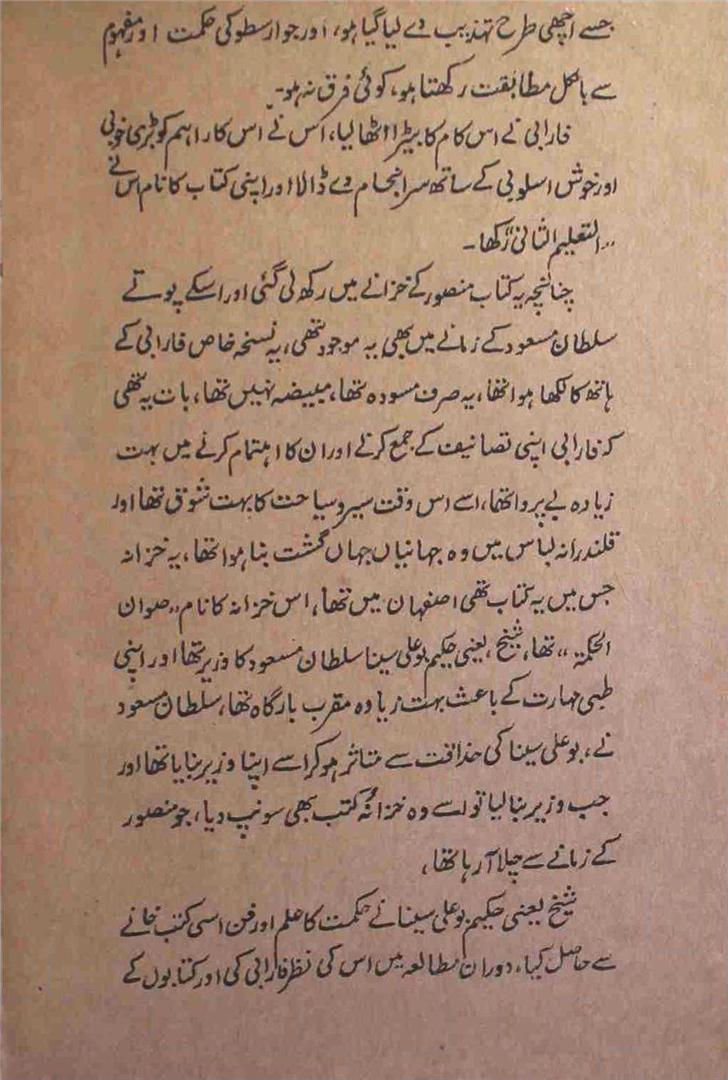 جسے اچھی طرح تہذیب دے لیا گیا ہو، اور جو ارسطو کی حکمت اور مفہوم
سے بالکل مطابقت رکھتا ہو، کوئی فرق نہ ہو۔
فارابی نے اس کام کا بیڑا اٹھا لیا، اس نے اس کار اہم کو بڑی خوبی
اور خوش اسلوبی کے ساتھ سرانجام دے ڈالا اور اپنی کتاب کا نام اس نے
,,التعلیم الثانی رکھا۔
چنانچہ یہ کتاب منصور کے خزانے میں رکھ لی گئی اور اسکے پوتے
سلطان مسعود کے زمانے میں بھی یہ موجود تھی، یہ نسخہ خاص فارابی کے
ہاتھ کا لکھا ہوا تھا، یہ صرف مسودہ تھا، مبیضہ نہیں تھا، بات یہ تھی
کہ فارابی اپنی تصانیف کے جمع کرنے اور ان کا اہتمام کرنے میں بہت
زیادہ بے پروا تھا، اسے اس وقت سیر و سیاحت کا بہت شوق تھا اور
قلندرانہ لباس میں وہ جہانیاں جہاں گشت بنا ہوا تھا، یہ خزانہ
جس میں یہ کتاب تھی اصفہان میں تھا، اس خزانہ کا نام ,,صوان
الحکمۃ،، تھا، شیخ، یعنی حکیم بو علی سینا سلطان مسعود کا وزیر تھا اور اپنی
طبی مہارت کے باعث بہت زیادہ مقرب بارگاہ تھا، سلطان مسعود
نے، بو علی سینا کی حذاقت سے متاثر ہو کر اسے اپنا وزیر بنایا تھا اور
جب وزیر بنا لیا تو اسے وہ خزانۂ کتب بھی سونپ دیا، جو منصور
کے زمانے سے چلا آ رہا تھا،
شیخ یعنی حکیم بو علی سینا نے حکمت کا علم اور فن اسی کتب خانے
سے حاصل کیا، دوران مطالعہ میں اس کی نظر فارابی کی اور کتابوں کے